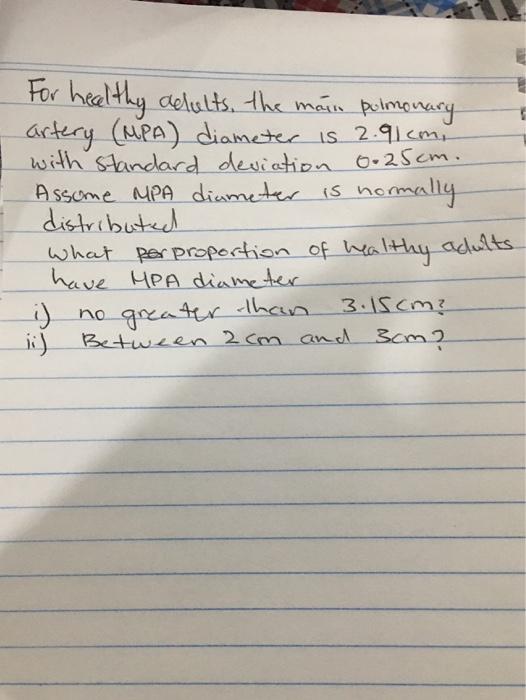 For healthy adults, the main pulmonary
artery (MPA) diameter is 2.91cm,
with standard deviation 0.25cm.
Assume MPA diameter is normally
distributed
what per proportion of healthy adults
have MPA diameter
i) no greater than 3.15cm?
ii) Between 2cm and 3cm?